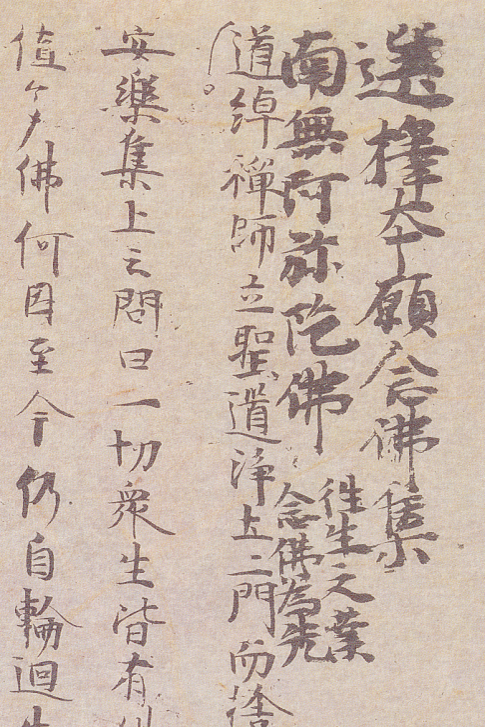 選擇本願念佛集
南無阿弥陀佛
往生之業
念佛為先
道綽禪師立聖道淨土二門而捨
安樂集上云問曰一切衆生皆有
値多佛何因至今仍自輪迴生